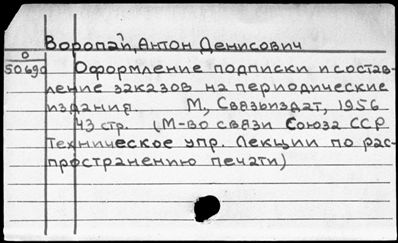 Воропай, Антон Денисович
0
50690
Оформление подписки и состав-
ление заказов на периодические
издания. М, Связьиздат, 1956
43 стр. (М-во связи Союза ССР
Техническое упр. Лекции по рас-
пространению печати)